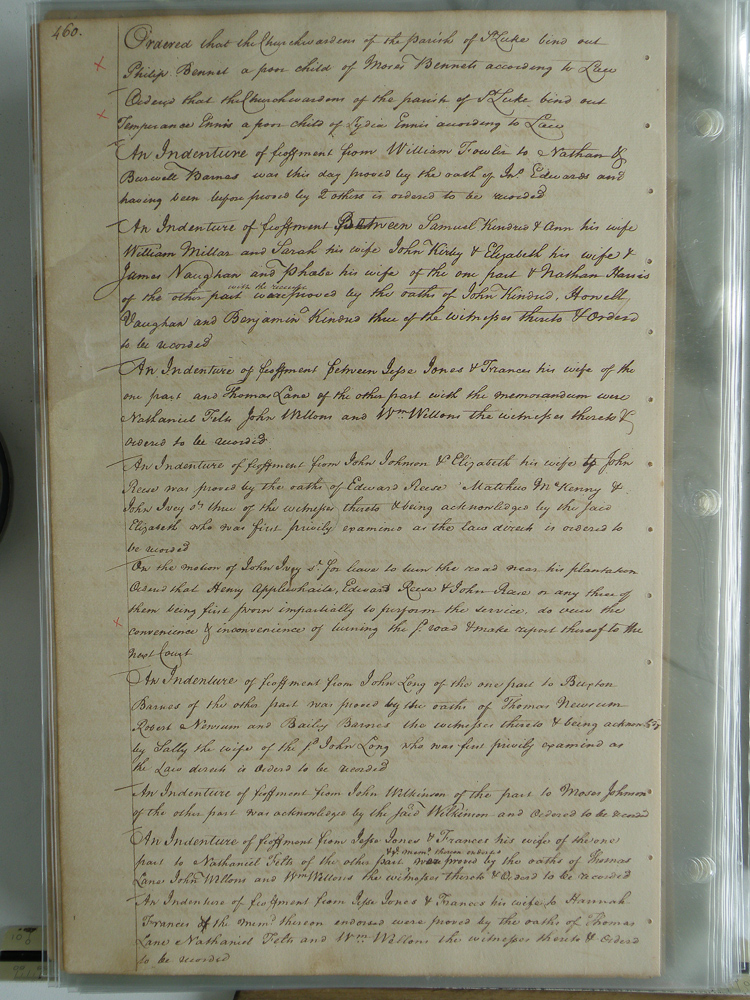 460.
Ordered that the Churchwardens of the parish of St Luke bind out
Philip Bennet a poor child of Moses Bennets according to Law
Ordered that the Churchwardens of the parish of St Luke bind out
Temperance Ennis a poor child of Lydia Ennis according to Law
An Indenture of feoffment from William Fowler to Nathan &
Burwell Barnes was this day proved by the oath of Jno. Edwards and
having been before proved by 2 others is ordered to be recorded
An Indenture of feoffment Between Samuel Kindred & Ann his wife
William Millar and Sarah his wife John Kirby & Elizabeth his wife &
James Vaughan and Phebe his wife of the one part & Nathan Harris
with the receipt
of the other part were proved by the oaths of John Kindred, Howell
Vaughan and Benjamin Kindred three of the witnesses thereto & Orderd
to be recorded
An Indenture of feoffment between Jesse Jones & Frances his wife of the
one part and Thomas Lane of the other part with the memorandum were
Nathaniel Felts John Wellons and Wm Wellons the witnesses thereto &
ordered to be recorded
An Indenture of feoffment from John Johnson & Elizabeth his wife to John
Reese was proved by the oaths of Edward Reese Matthew McKenny &
John Ivey sr. three of the witnesses thereto & being acknowledged by the said
Elizabeth who was first privily examined as the law directs is ordered to
be recorded
On the motion of John Ivey sr. for leave to turn the road near his plantation
Ordered that Henry Applewhaite, Edward Reese & John Reese or any three of
them being first sworn impartially to perform the service, do view the
convenience & inconvenience of turning the sd. road & make report thereof to the
next Court
An Indenture of feoffment from John Long of the one part to Buxton
Barnes of the other part was proved by the oaths of Thomas Newsum
Robert Newsum and Bailey Barnes the witnesses thereto & being acknowledg
by Sally the wife of the sd. John Long who was first privily examind as
the Law directs is orderd to be recorded
An Indenture of feoffment from John Wilkinson of the part to Moses Johnson
of the other part was acknowledged by the said Wilkinson and Ordered to be recorded
An Indenture of feoffment from Jesse Jones & Frances his wife of the one
& ye. memo. thereon endorsd.
part to Nathaniel Felts of the other part were proved by the oaths of Thomas
Lane John Wellons and Wm Wellons the witnesses thereto & Orderd to be recorded
An Indenture of feoffment from Jesse Jones & Frances his wife to Hannah
Frances & the memo. thereon endorsed were proved by the oaths of Thomas
Lane Nathaniel Felts and Wm Wellons the witnesses thereto & Orderd
to be recorded